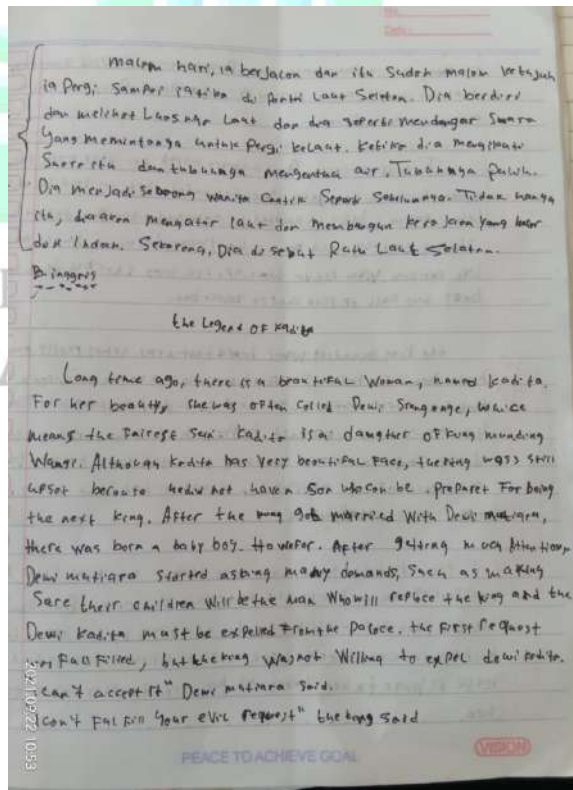 malam hari, ia berjalan dan itu sudah malam ketujuh
ia Pergi sampai ia tiba di Pantai Laut Selatan. Dia berdiri
dan melihat Luasnya Laut dan dia seperti mendengar Suara
Yang memintanya untuk Pergi kelaut. Ketika dia mengikuti
Suara itu dan tubuhnya menyentuh air, Tubuhnya Pulih.
Dia menjadi seorang wanita Cantik Seperti Sebelumnya. Tidak hanya
itu, mengatur laut dan membangun kerajaan yang besar
dan Indah. Sekarang, Dia di sebut Ratu Laut Selatan.
B. inggris
the Legend OF Kadita
Long time ago, there is a beautiFul Woman, named Kadita.
For her beauty, she was oFten called Dewi Srengenge,
means the Fairest Sun. Kadita is a daugther OF King munding
Wangi. Although Kadita has Very beautiFul Face, the king was still
upset because not have a Son who can be Preparet For being
the next King. After the king got married With Dewi mutiara,
there was born a baby boy. HoweFer. AFter getting much Attention,
Dewi mutiara Started asking many demands, Such as making
Sure their children Will be the man Who will replace the king and the
Dewi Kadita must be expelled From the Palace. the First request
Full Filled, but the king was not Willing to expel dewi kadita.
can't accept it" Dewi mutiara Said.
can't Ful Fill Your evil request" the king Said
2021/09/22 10:53
PEACE TO ACHIEVE GOAL
VISION